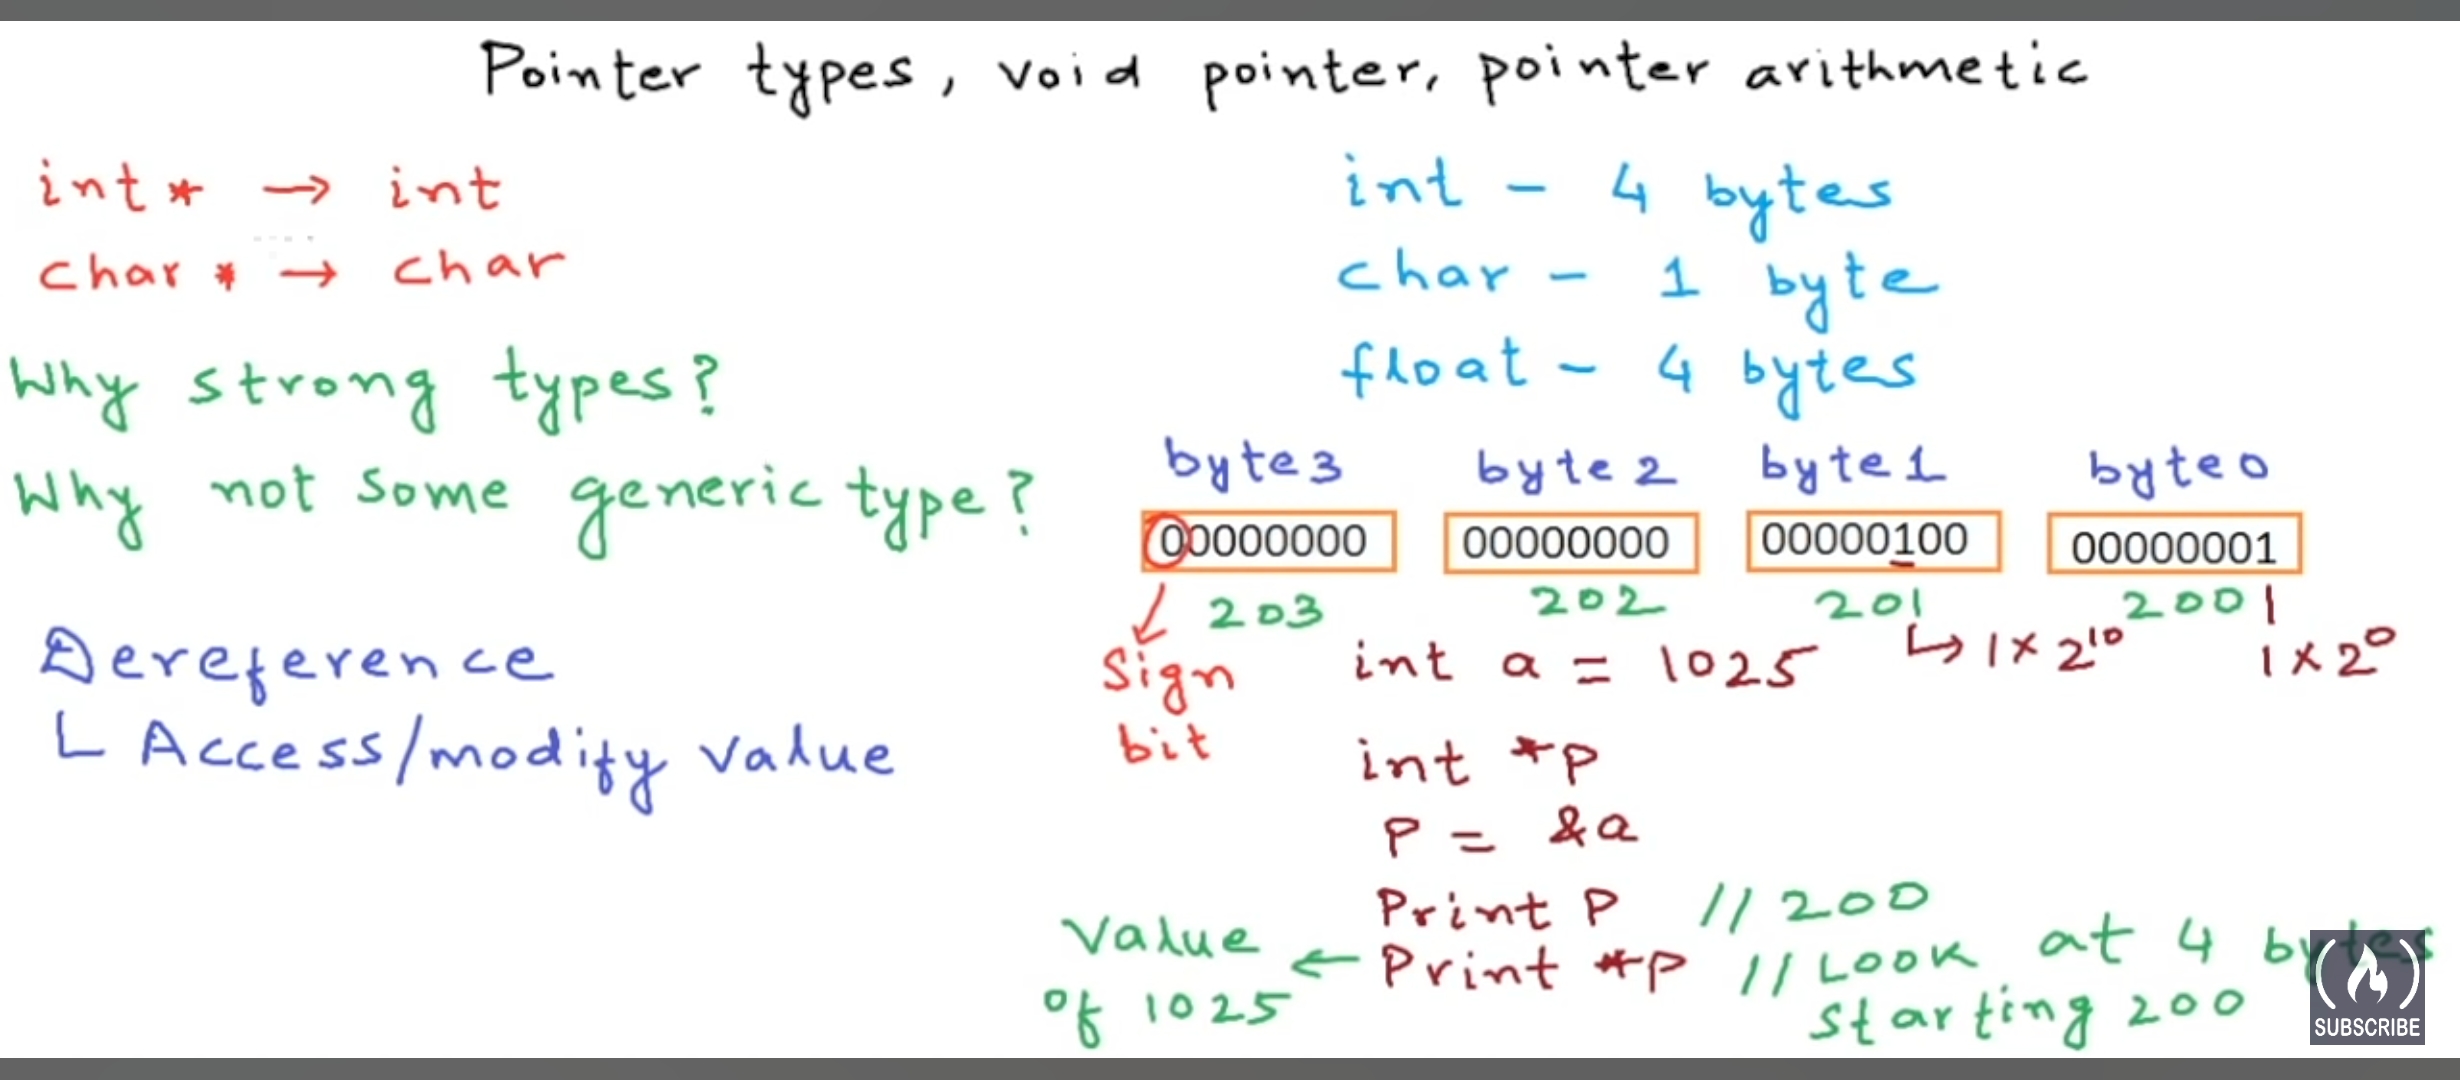 Pointer types, void pointer, pointer arithmetic
int* → int
char* → char
Why strong types?
Why not some generic type?
Dereference
└ Access/modify value
int - 4 bytes
char - 1 byte
float - 4 bytes
byte3 byte2 byte1 byte0
00000000 00000000 00000100 00000001
203 202 201 200
Sign bit
↳ 1 × 2¹⁰
1 × 2⁰
int a = 1025
int *p
P = &a
Print P // 200
Print *p // Look at 4 bytes
starting 200
Value
of 1025 ←
SUBSCRIBE